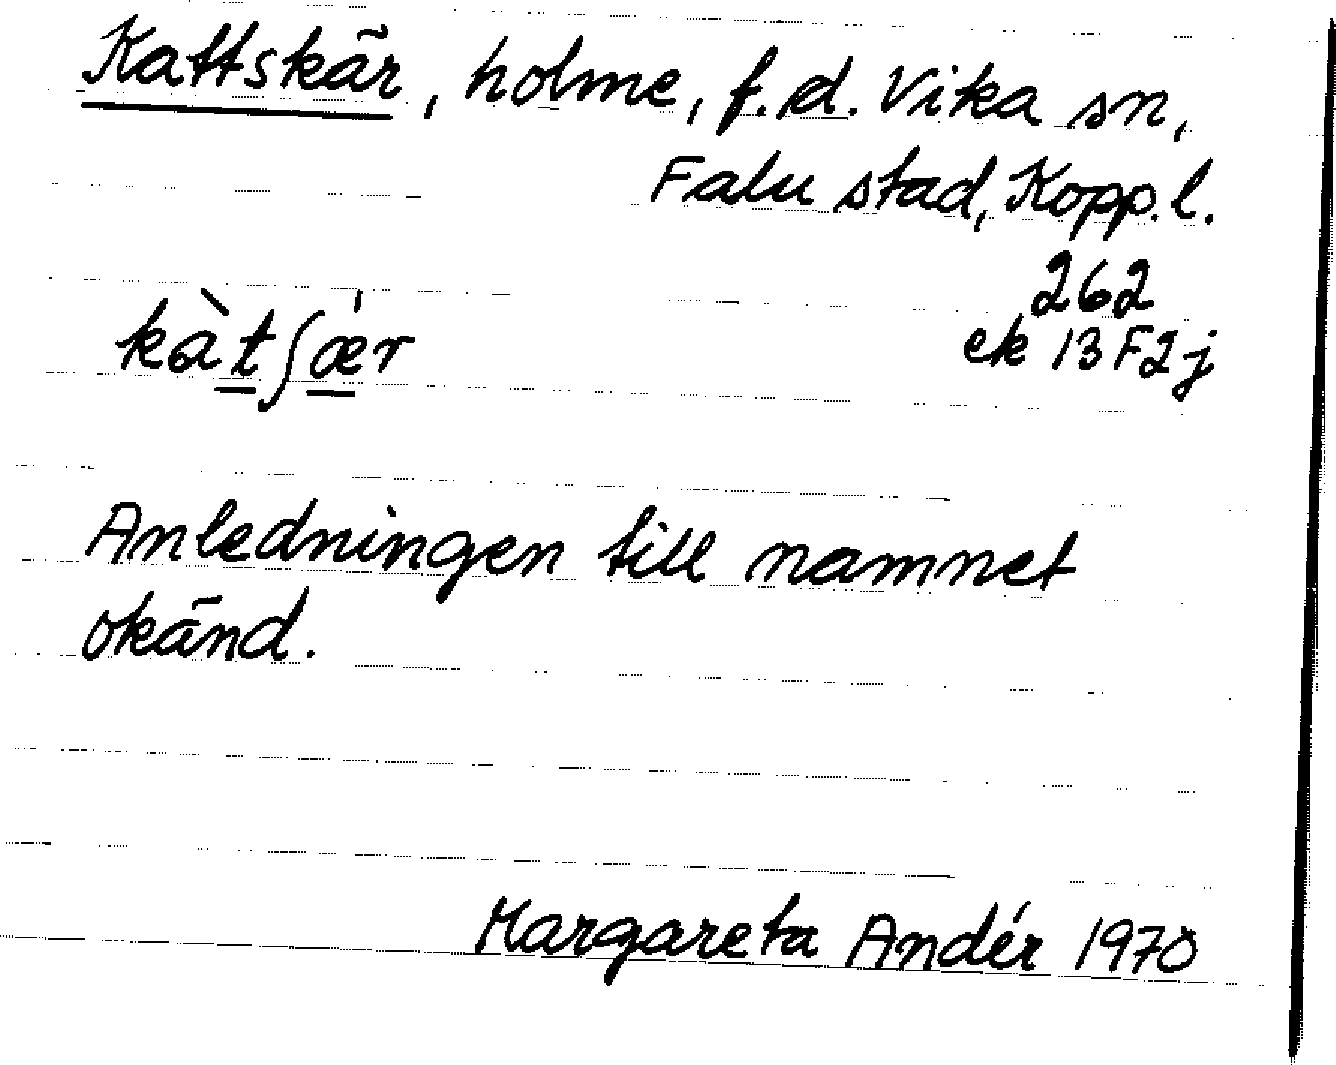 Kattskär, holme, f.d. Vika sn,
Falu stad, Kopp.l.
262
ek 13F2j
kàt̲ʃæ̲̍r
Anledningen till namnet
okänd.
Margareta Andér 1970